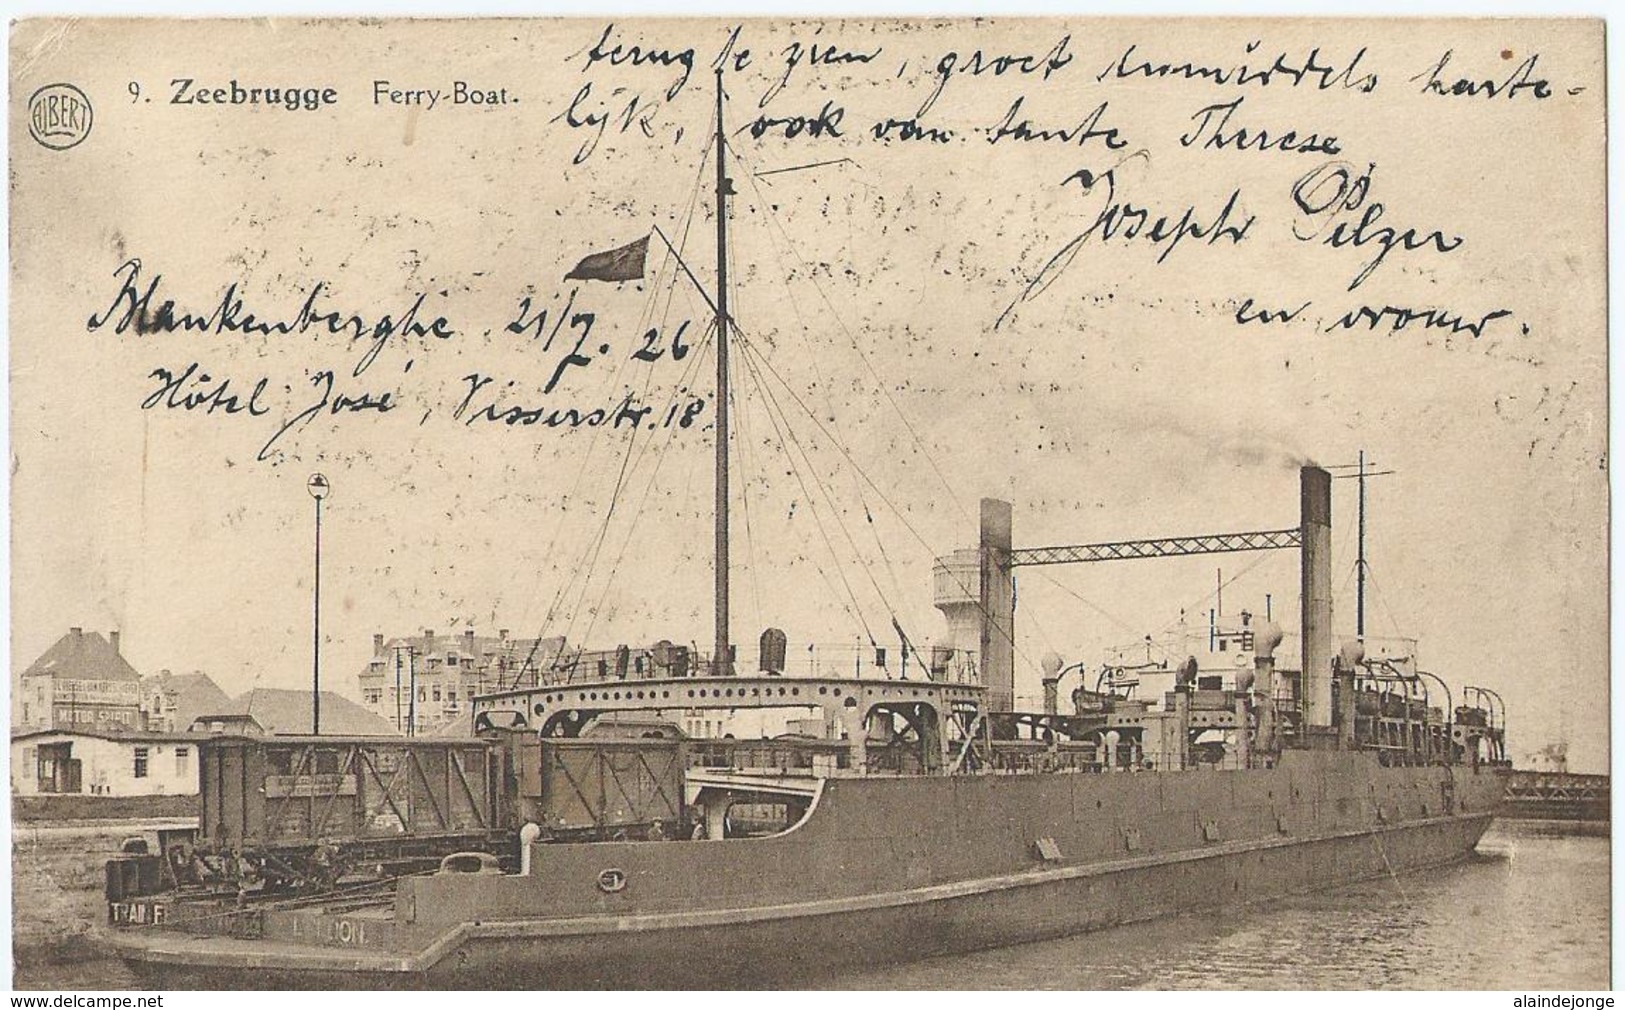 terug te zien, groet inmiddels harte-
lijk, ook van tante Therese
Joseph Pelzer
en vrouw.
ALBERT
9. Zeebrugge Ferry-Boat.
Blankenberghe 21/7. 26
Hôtel José, Visserstr. 18
MOTOR SPIRIT
TRAIN F
L NDON
www.delcampe.net
alaindejonge